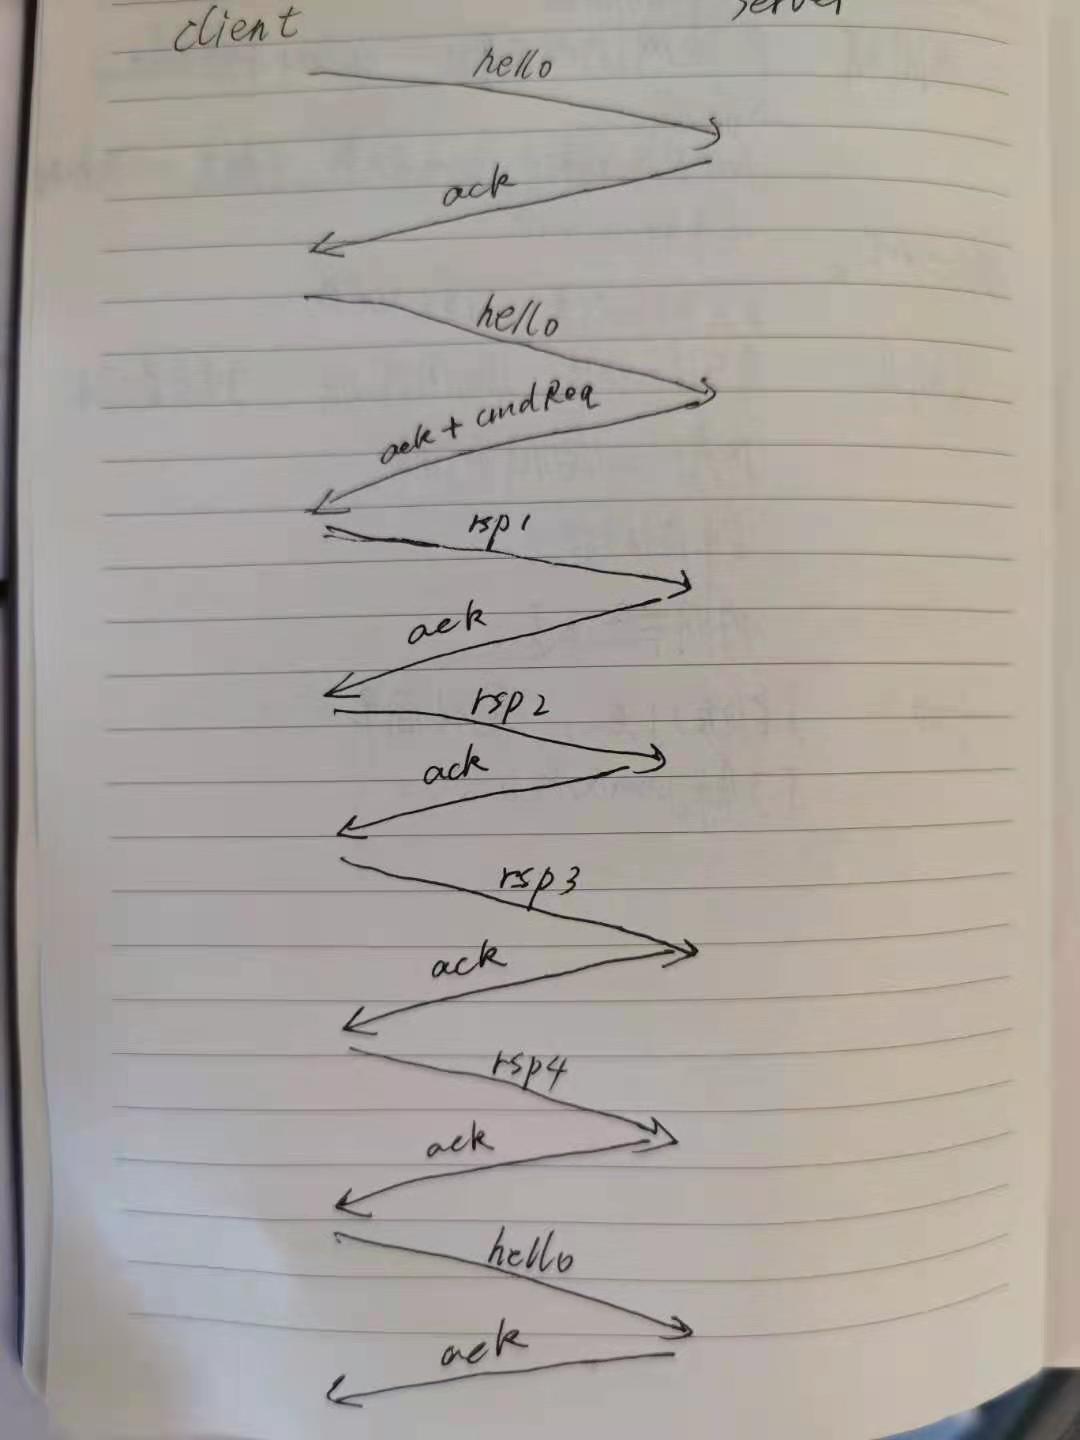 client server
hello
ack
hello
ack + cmdReq
rsp1
ack
rsp2
ack
rsp3
ack
rsp4
ack
hello
ack